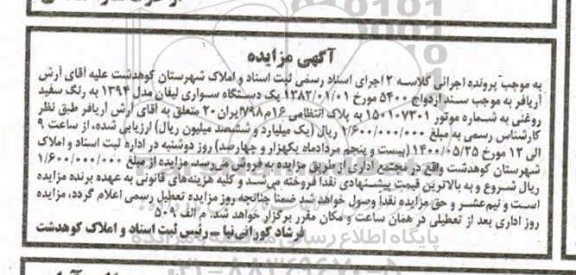 آگهی مزایده
به موجب پرونده اجرائی کلاسه ۲ اجرای اسناد رسمی ثبت اسناد و املاک شهرستان کوهدشت علیه آقای آرش
آریافر به موجب سند ازدواج ۵۴۰۰ مورخ ۱۳۸۲/۰۱/۰۱ یک دستگاه سواری لیفان مدل ۱۳۹۴ به رنگ سفید
روغنی به شماره موتور ۱۵۰۱۰۷۳۰۱ به پلاک انتظامی ۱۶م۷۹۸ایران۲۰ متعلق به آقای آرش آریافر طبق نظر
کارشناس رسمی به مبلغ ۱/۶۰۰/۰۰۰/۰۰۰ ریال (یک میلیارد و ششصد میلیون ریال) ارزیابی شده، از ساعت ۹
الی ۱۲ مورخ ۱۴۰۰/۰۵/۲۵ (بیست و پنجم مردادماه یکهزار و چهارصد) روز دوشنبه در اداره ثبت اسناد و املاک
شهرستان کوهدشت واقع در مجتمع اداری از طریق مزایده به فروش می‌رسد، مزایده از مبلغ ۱/۶۰۰/۰۰۰/۰۰۰
ریال شروع و به بالاترین قیمت پیشنهادی نقداً فروخته می‌شد و کلیه هزینه‌های قانونی به عهده برنده مزایده
است و نیم‌عشر و حق مزایده نقداً وصول خواهد شد ضمناً چنانچه روز مزایده تعطیل رسمی اعلام گردد، مزایده
روز اداری بعد از تعطیلی در همان ساعت و مکان مقرر برگزار خواهد شد. م الف ۵۰۹
فرشاد کورانی‌نیا ـ رئیس ثبت اسناد و املاک کوهدشت
پایگاه اطلاع رسانی مناقصه و مزایده